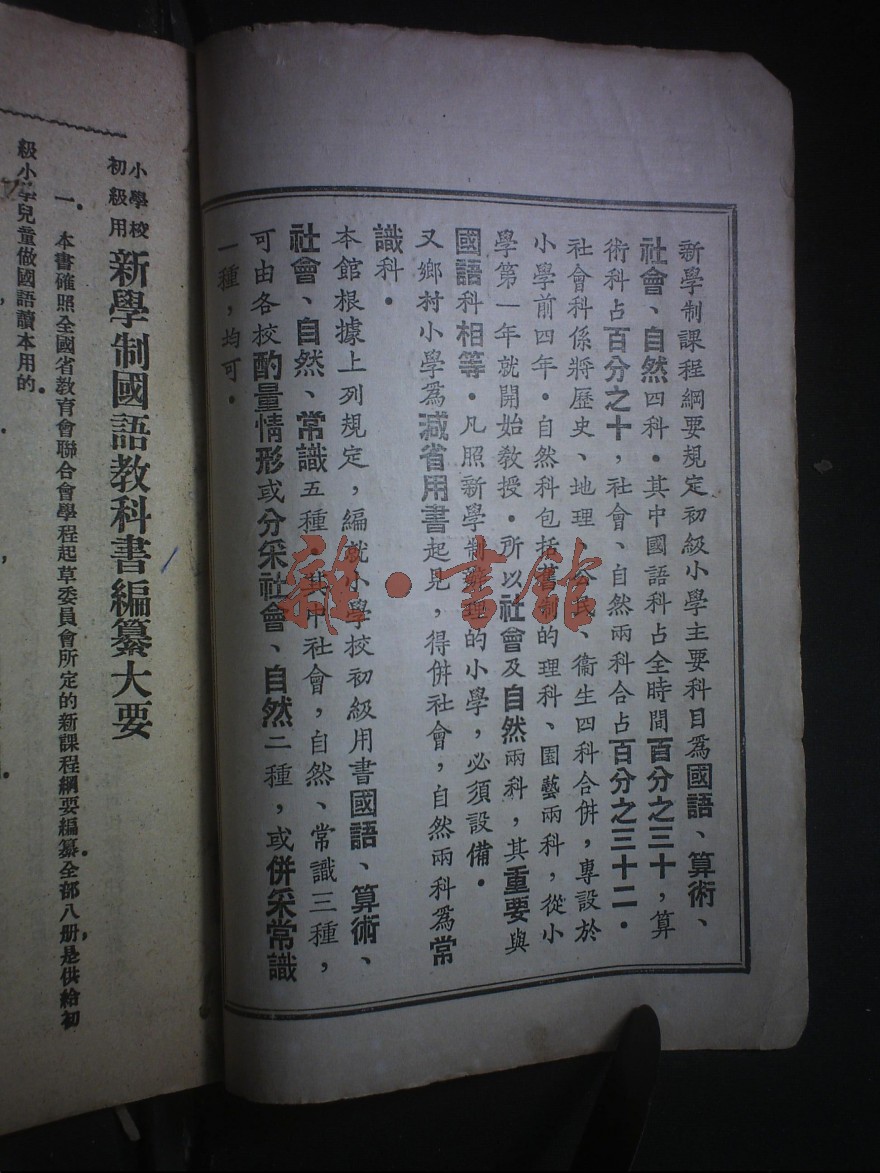 新學制課程綱要規定初級小學主要科目爲國語、算術、
社會、自然四科．其中國語科占全時間百分之三十，算
術科占百分之十，社會、自然兩科合占百分之三十二．
社會科係將歷史、地理、公民、衞生四科合併，專設於
小學前四年．自然科包括舊制的理科、園藝兩科，從小
學第一年就開始教授．所以社會及自然兩科，其重要與
國語科相等．凡照新學制辦理的小學，必須設備．
又鄉村小學爲減省用書起見，得併社會，自然兩科爲常
識科．
本館根據上列規定，編就小學校初級用書國語、算術、
社會、自然、常識五種．其中社會，自然、常識三種，
可由各校酌量情形或分采社會、自然二種，或併采常識
一種，均可．
雜·書館
小學校
初級用
新學制國語教科書編纂大要
一．本書確照全國省教育會聯合會學程起草委員會所定的新課程綱要編纂．全部八册，是供給初
級小學兒童做國語讀本用的．